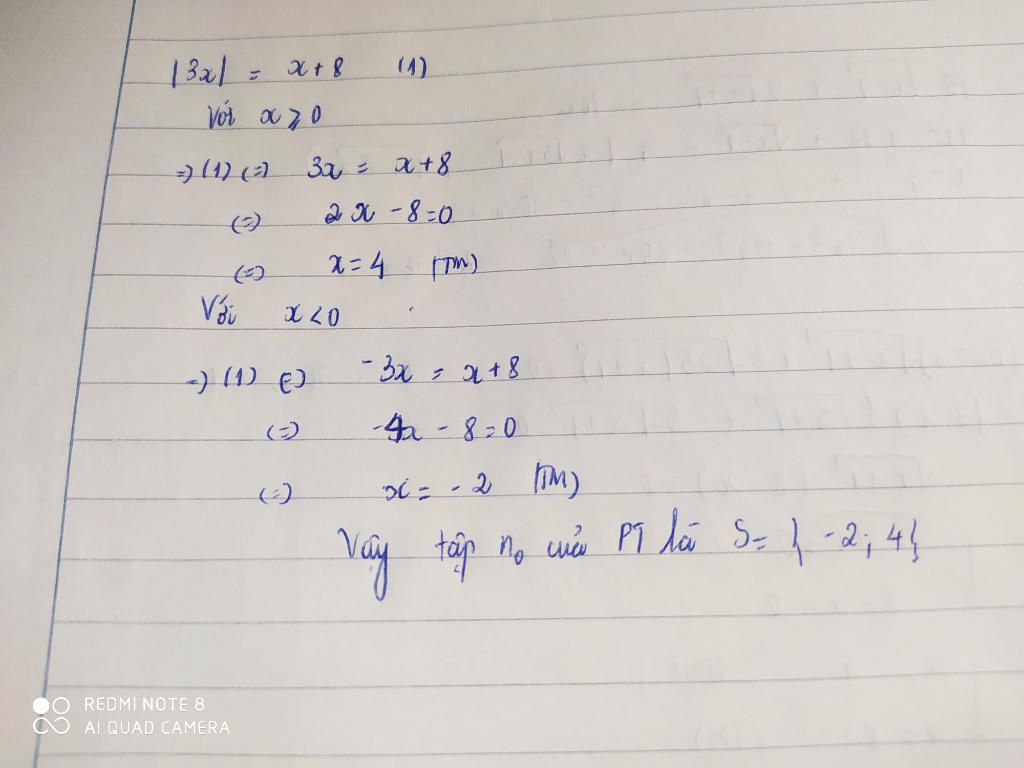 |3x| = x + 8 (1)
Với x ⩾ 0
=> (1) (=) 3x = x + 8
(=) 2x - 8 = 0
(=) x = 4 (TM)
Với x < 0
=> (1) (=) -3x = x + 8
(=) -4x - 8 = 0
(=) x = -2 (TM)
Vậy tập n₀ của PT là S = { -2; 4}
REDMI NOTE 8
AI QUAD CAMERA